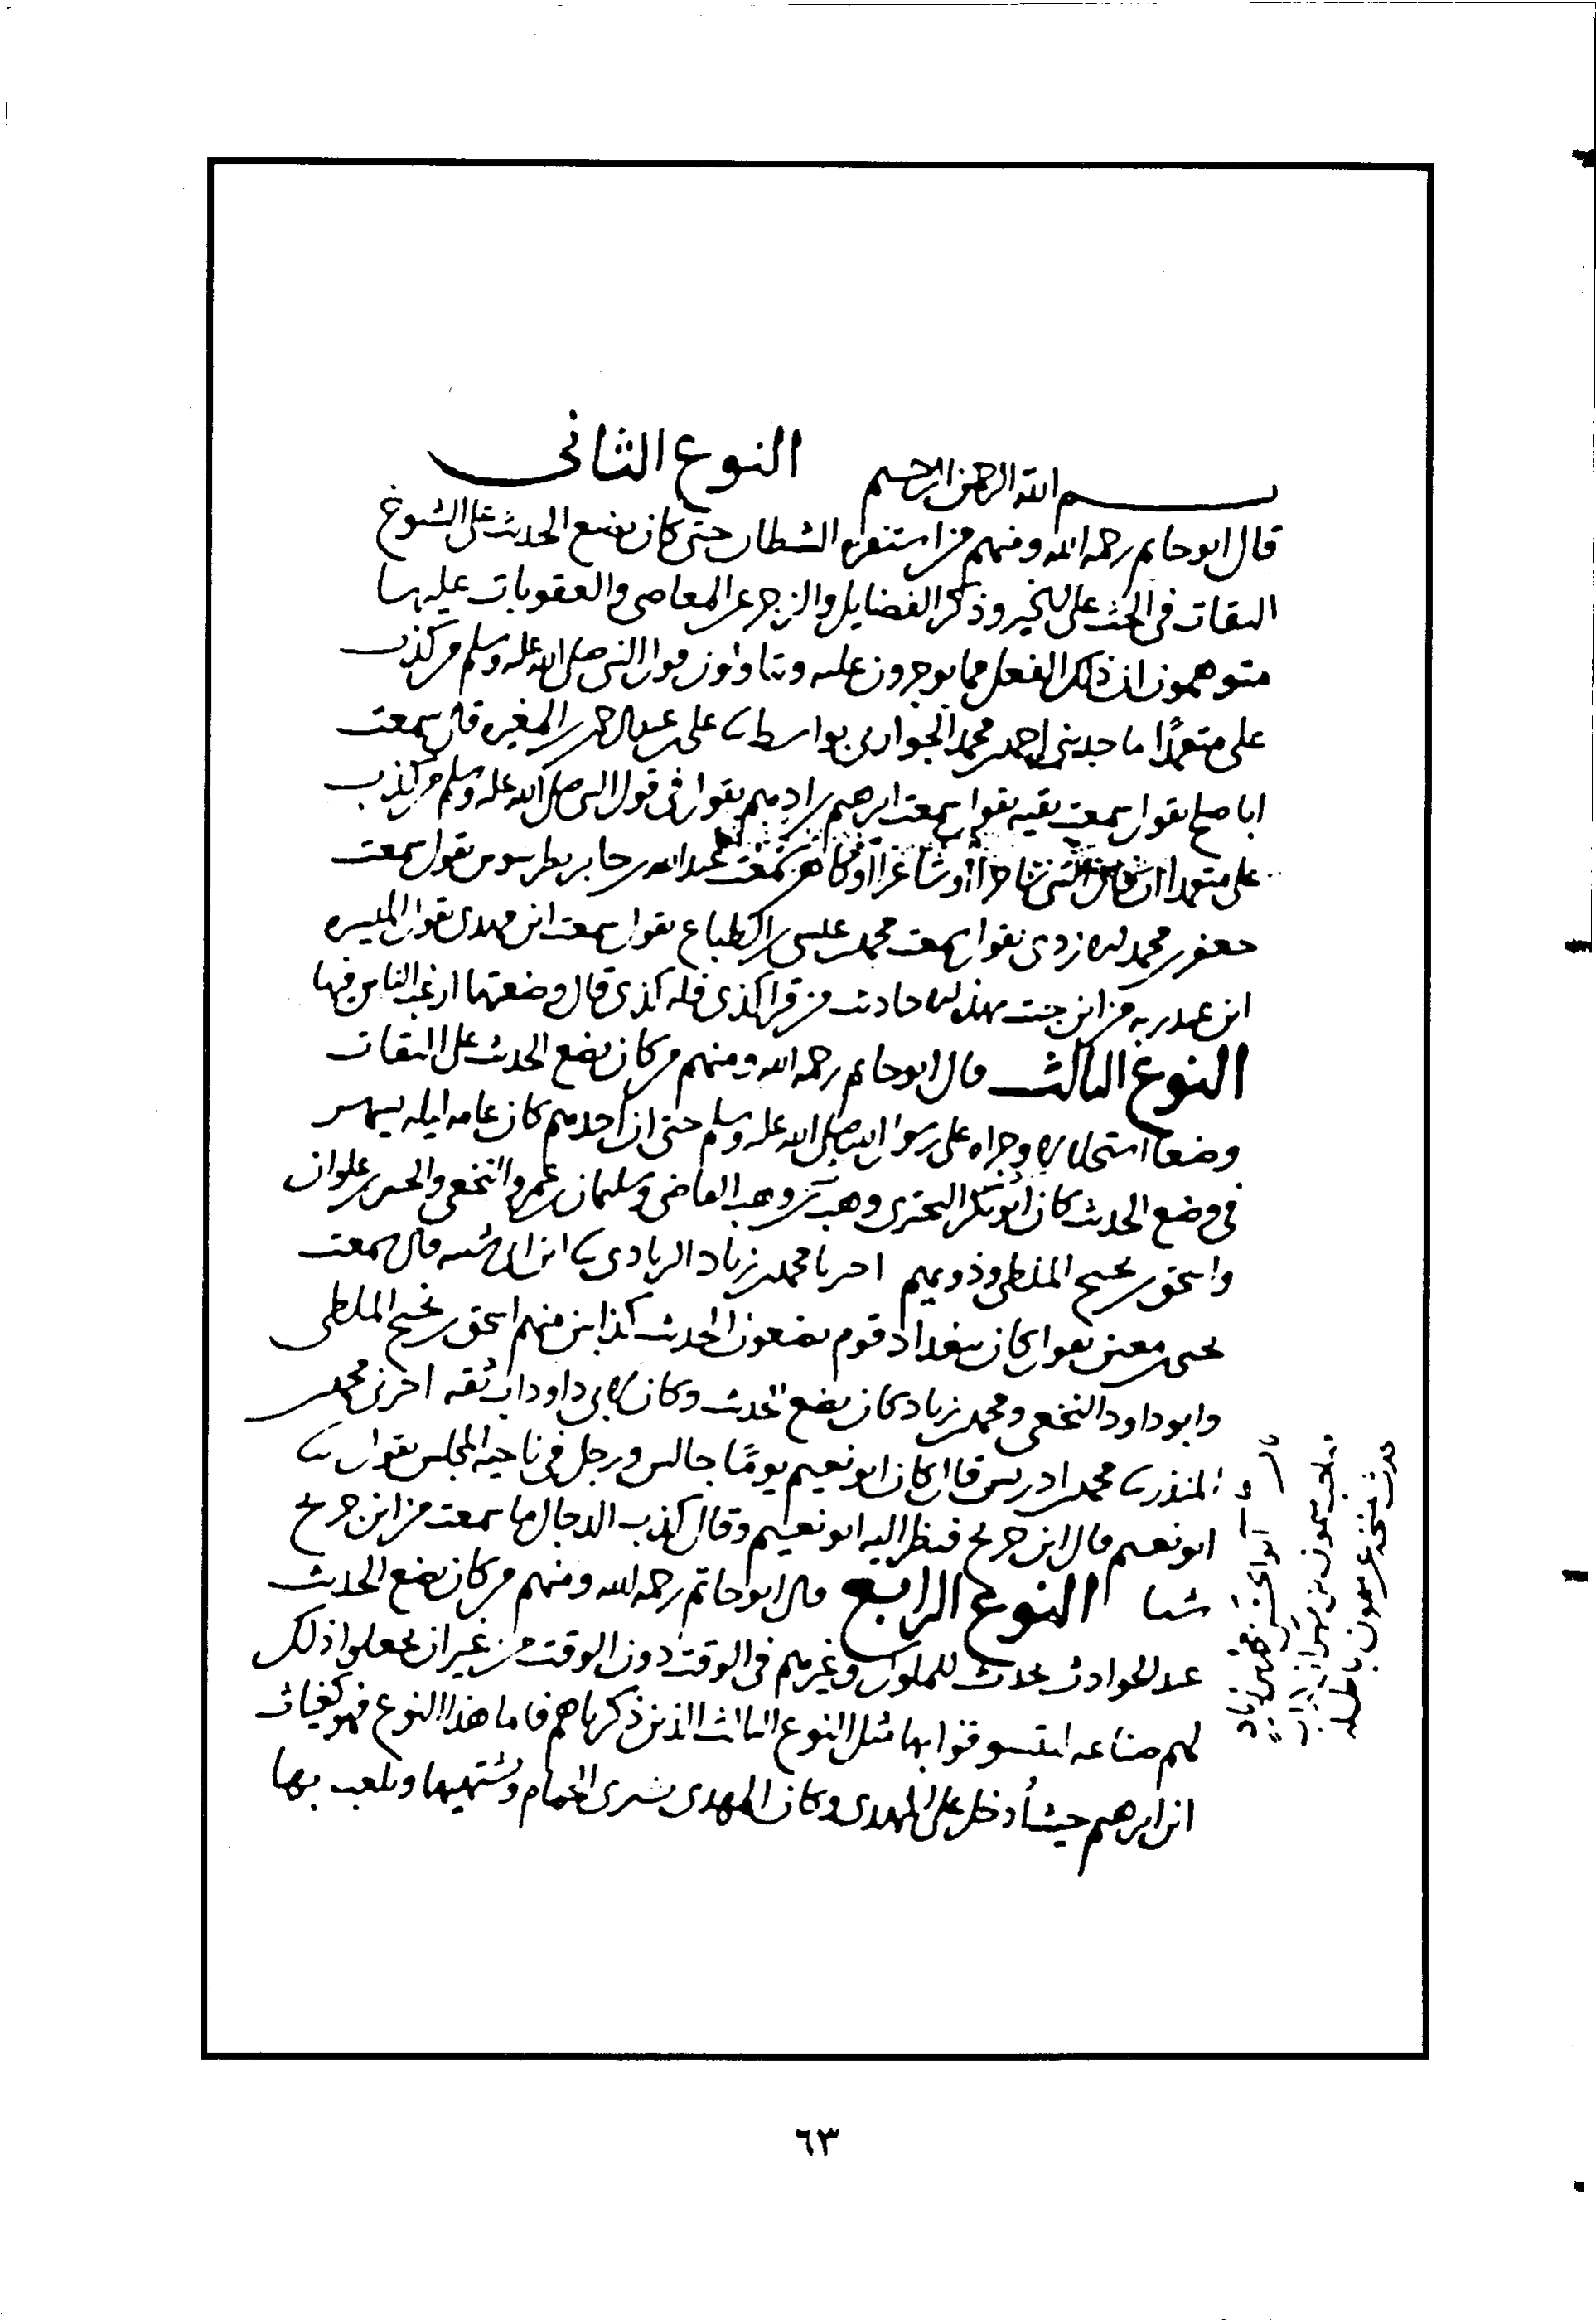 بسم الله الرحمن الرحيم النوع الثانى
قال ابو حاتم رحمه الله ومنهم من استفزه الشيطان حتى كان يضع الحديث على الشيوخ
الثقات فى الحث على الخير وذكر الفضايل والزجر عن المعاصى والعقوبات عليها
متوهمون ان ذلك الفعل مما يوجرون عليه ويتاولون قول النبي صلى الله عليه وسلم من كذب
على متعمدًا ما حدثنى احمد بن محمد الجواربى بواسط على بن عبد الرحمن بن المغيره قال سمعت
ابا صلح يقول سمعت بقيه يقول سمعت ابرهيم بن ادهم يقول فى قول النبي صلى الله عليه وسلم من كذب
على متعمدا ان شاعرا او سمعت عبد الله بن جابر بطرسوس يقول سمعت
جعفر بن محمد الازدى يقول سمعت محمد بن عيسى بن الطباع يقول سمعت ابن مهدى يقول لميسره
ابن عبد ربه من اين جيت بهذه الاحاديث من قرا كذى فله كذى قال وضعتها ارغب الناس فيها
النوع الثالث قال ابو حاتم رحمه الله ومنهم من كان يضع الحديث على الثقات
وضعا استحلالا وجراه على رسول الله صلى الله عليه وسلم حتى ان احدهم كان عامه ليله يسهر
فى وضع الحديث كان البخترى وهب بن وهب القاضى وسليمان بن عمرو النخعى والحسين بن علوان
واسحق بن نجيح الملطى وذويهم اخبرنا محمد بن زياد الزيادى ابن ابى شيبه قال سمعت
يحيى بن معين يقول كان ببغداد قوم يضعون الحديث كذابين منهم اسحق بن نجيح الملطى
وابو داود النخعى ومحمد بن زياد كان يضع الحديث وكان لابى داود ابن ثقه اخبرنى محمد بن
المنذر محمد بن ادريس قال كان ابو نعيم يومًا جالس ورجل فى ناحيه المجلس يقول
ابو نعيم قال ابن جريج فنظر اليه ابو نعيم وقال كذب الدجال ما سمعت من ابن جريج
شيا النوع الرابع قال ابو حاتم رحمه الله ومنهم من كان يضع الحديث
عند الحوادث يحدث للملوك وغيرهم فى الوقت دون الوقت من غير ان يجعلوا ذلك
لهم صناعه ليتسوقوا بها مثل النوع الثالث الذين ذكرناهم فاما هذا النوع فهو كغياث
ابن ابرهيم حيث أدخل على المهدى وكان المهدى يشترى الحمام ويشتهيها ويلعب بها
محمد بن زياد
ميمون بن مهران
حدث بنسخه عن ميمون باطله
٦٣